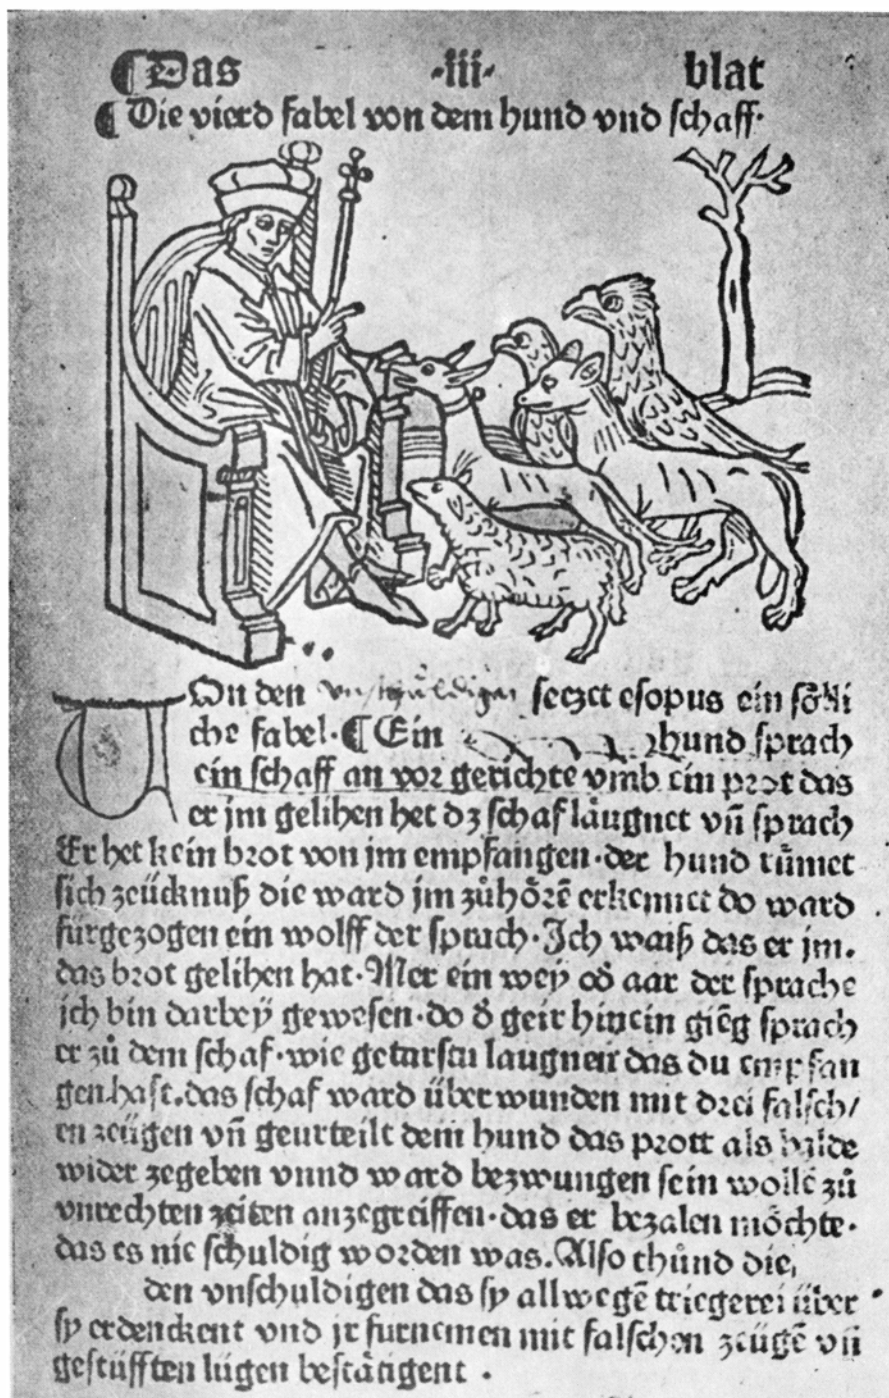 ¶ Das ·iii· blat
¶ Die vierd fabel von dem hund vnd ſchaff·
On den vnſchuldigen ſeczet eſopus ein ſoͤlli
che fabel·¶ Ein hund ſprach
ein ſchaff an vor gerichte vmb ein prot das
er jm gelihen het dz ſchaf laͤugnet vn̄ ſprach
Er het kein brot von jm empfangen·der hund ruͤmet
ſich zeücknuß die ward jm zůhoͤrē erkennet do ward
fürgezogen ein wolff der ſprach·Ich waiß das er jm.
das brot gelihen hat·Mer ein wey od̄ aar der ſprache
ich bin darbeÿ geweſen·do d̄ geir hinein giēg ſprach
er zů dem ſchaf·wie laugnen das du empfan
gen haſt.das ſchaf ward über wunden mit drei falſch/
en zeügen vn̄ geurteilt dem hund das prott als balde
wider zegeben vnnd ward bezwungen ſein wollē zů
vnrechten zeiten anzegreiffen·das er bezalen moͤchte·
das es nie ſchuldig worden was.Alſo thůnd die,
den vnſchuldigen das ſy allwegē triegerei über
ſy erdenckent vnd jr furnemen mit falſchen zeügē vn̄
geſtüfften lügen beſtaͤtigent .